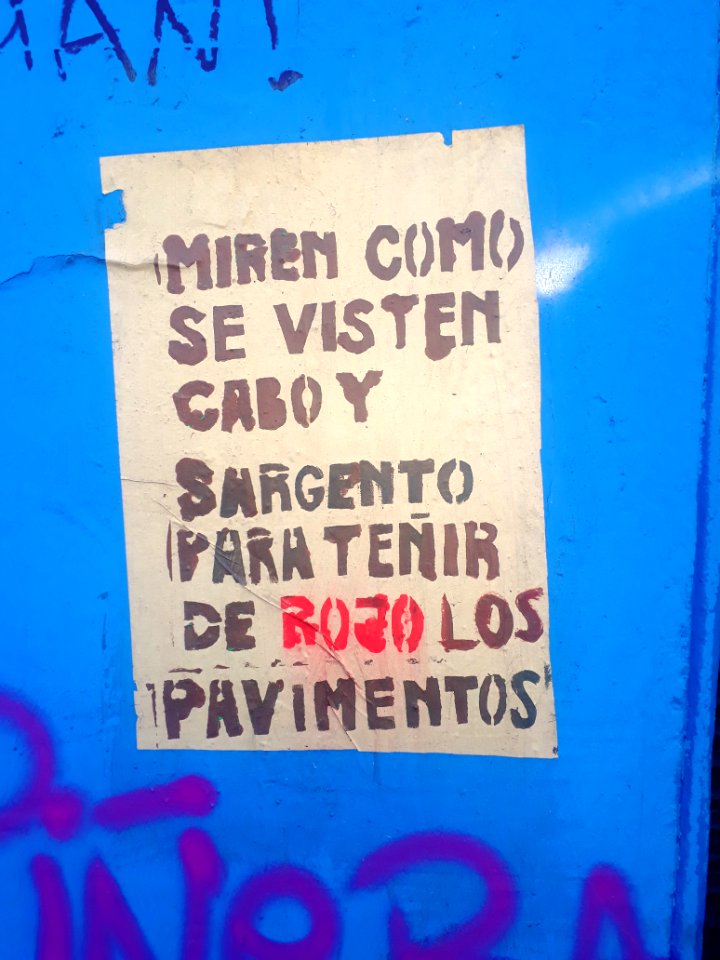 MIREN COMO
SE VISTEN
CABO Y
SARGENTO
PARA TEÑIR
DE ROJO LOS
PAVIMENTOS